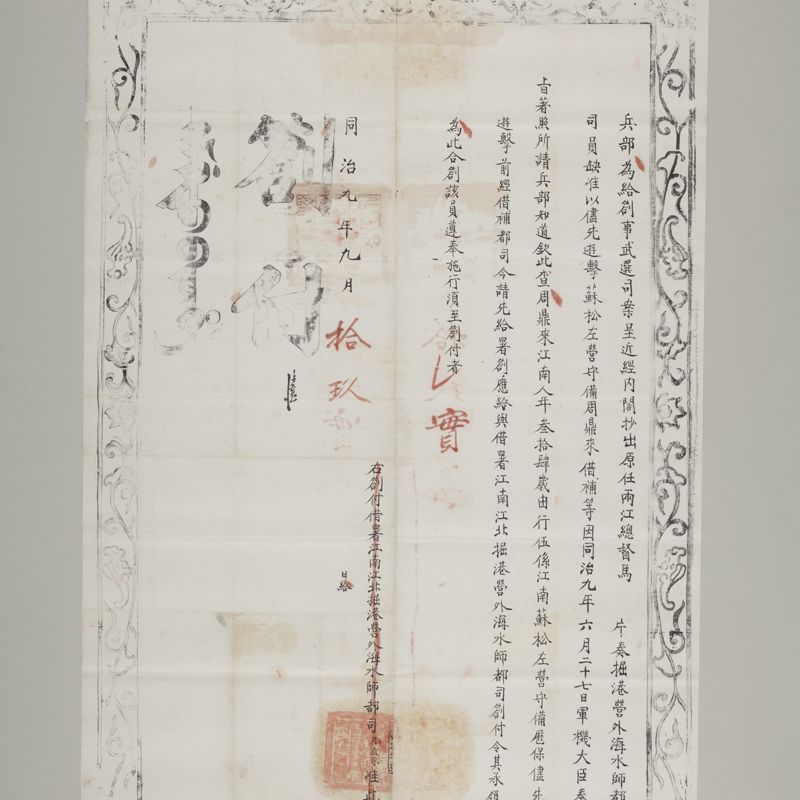 兵部為給劄事武選司案呈近經内閣抄出原任兩江總督馬 片奏掘港營外海水師都
司員缺准以儘先遊擊蘇松左營守備周鼎來借補等因同治九年六月二十七日軍機大臣奉
旨著照所請兵部知道欽此查周鼎來江南人年叁拾肆歲由行伍係江南蘇松左營守備歷保儘先
遊擊前經借補都司今請先給署劄應給與借署江南江北掘港營外海水師都司劄付令其承領
為此合劄該員遵奉施行須至劄付者
實
右劄付借署江南江北掘港營外海水師都司 准此
同治九年九月 拾玖
日給
劄付